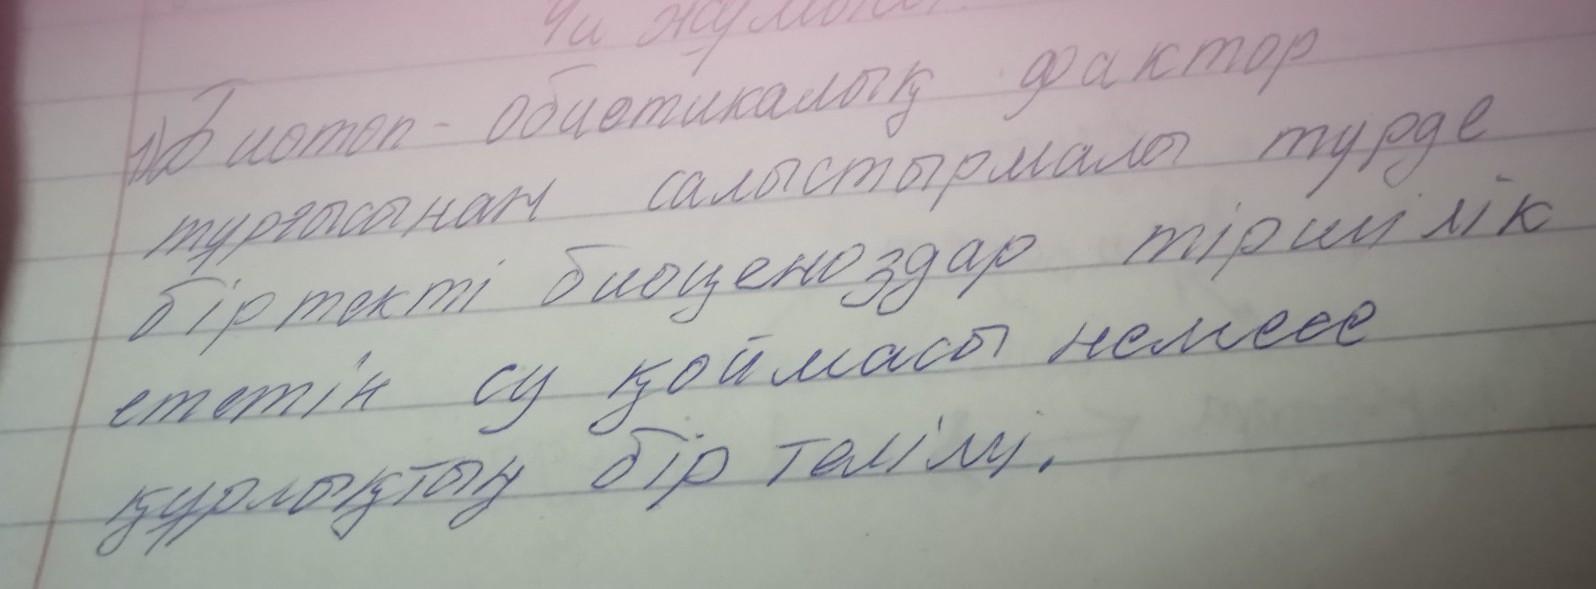 Үй жұмысы.
1) Биотоп - обиотикалық фактор
тұрғысынан салыстырмалы түрде
біртекті биоценоздар тіршілік
ететін су қоймасы немесе
құрлықтың бір телімі.